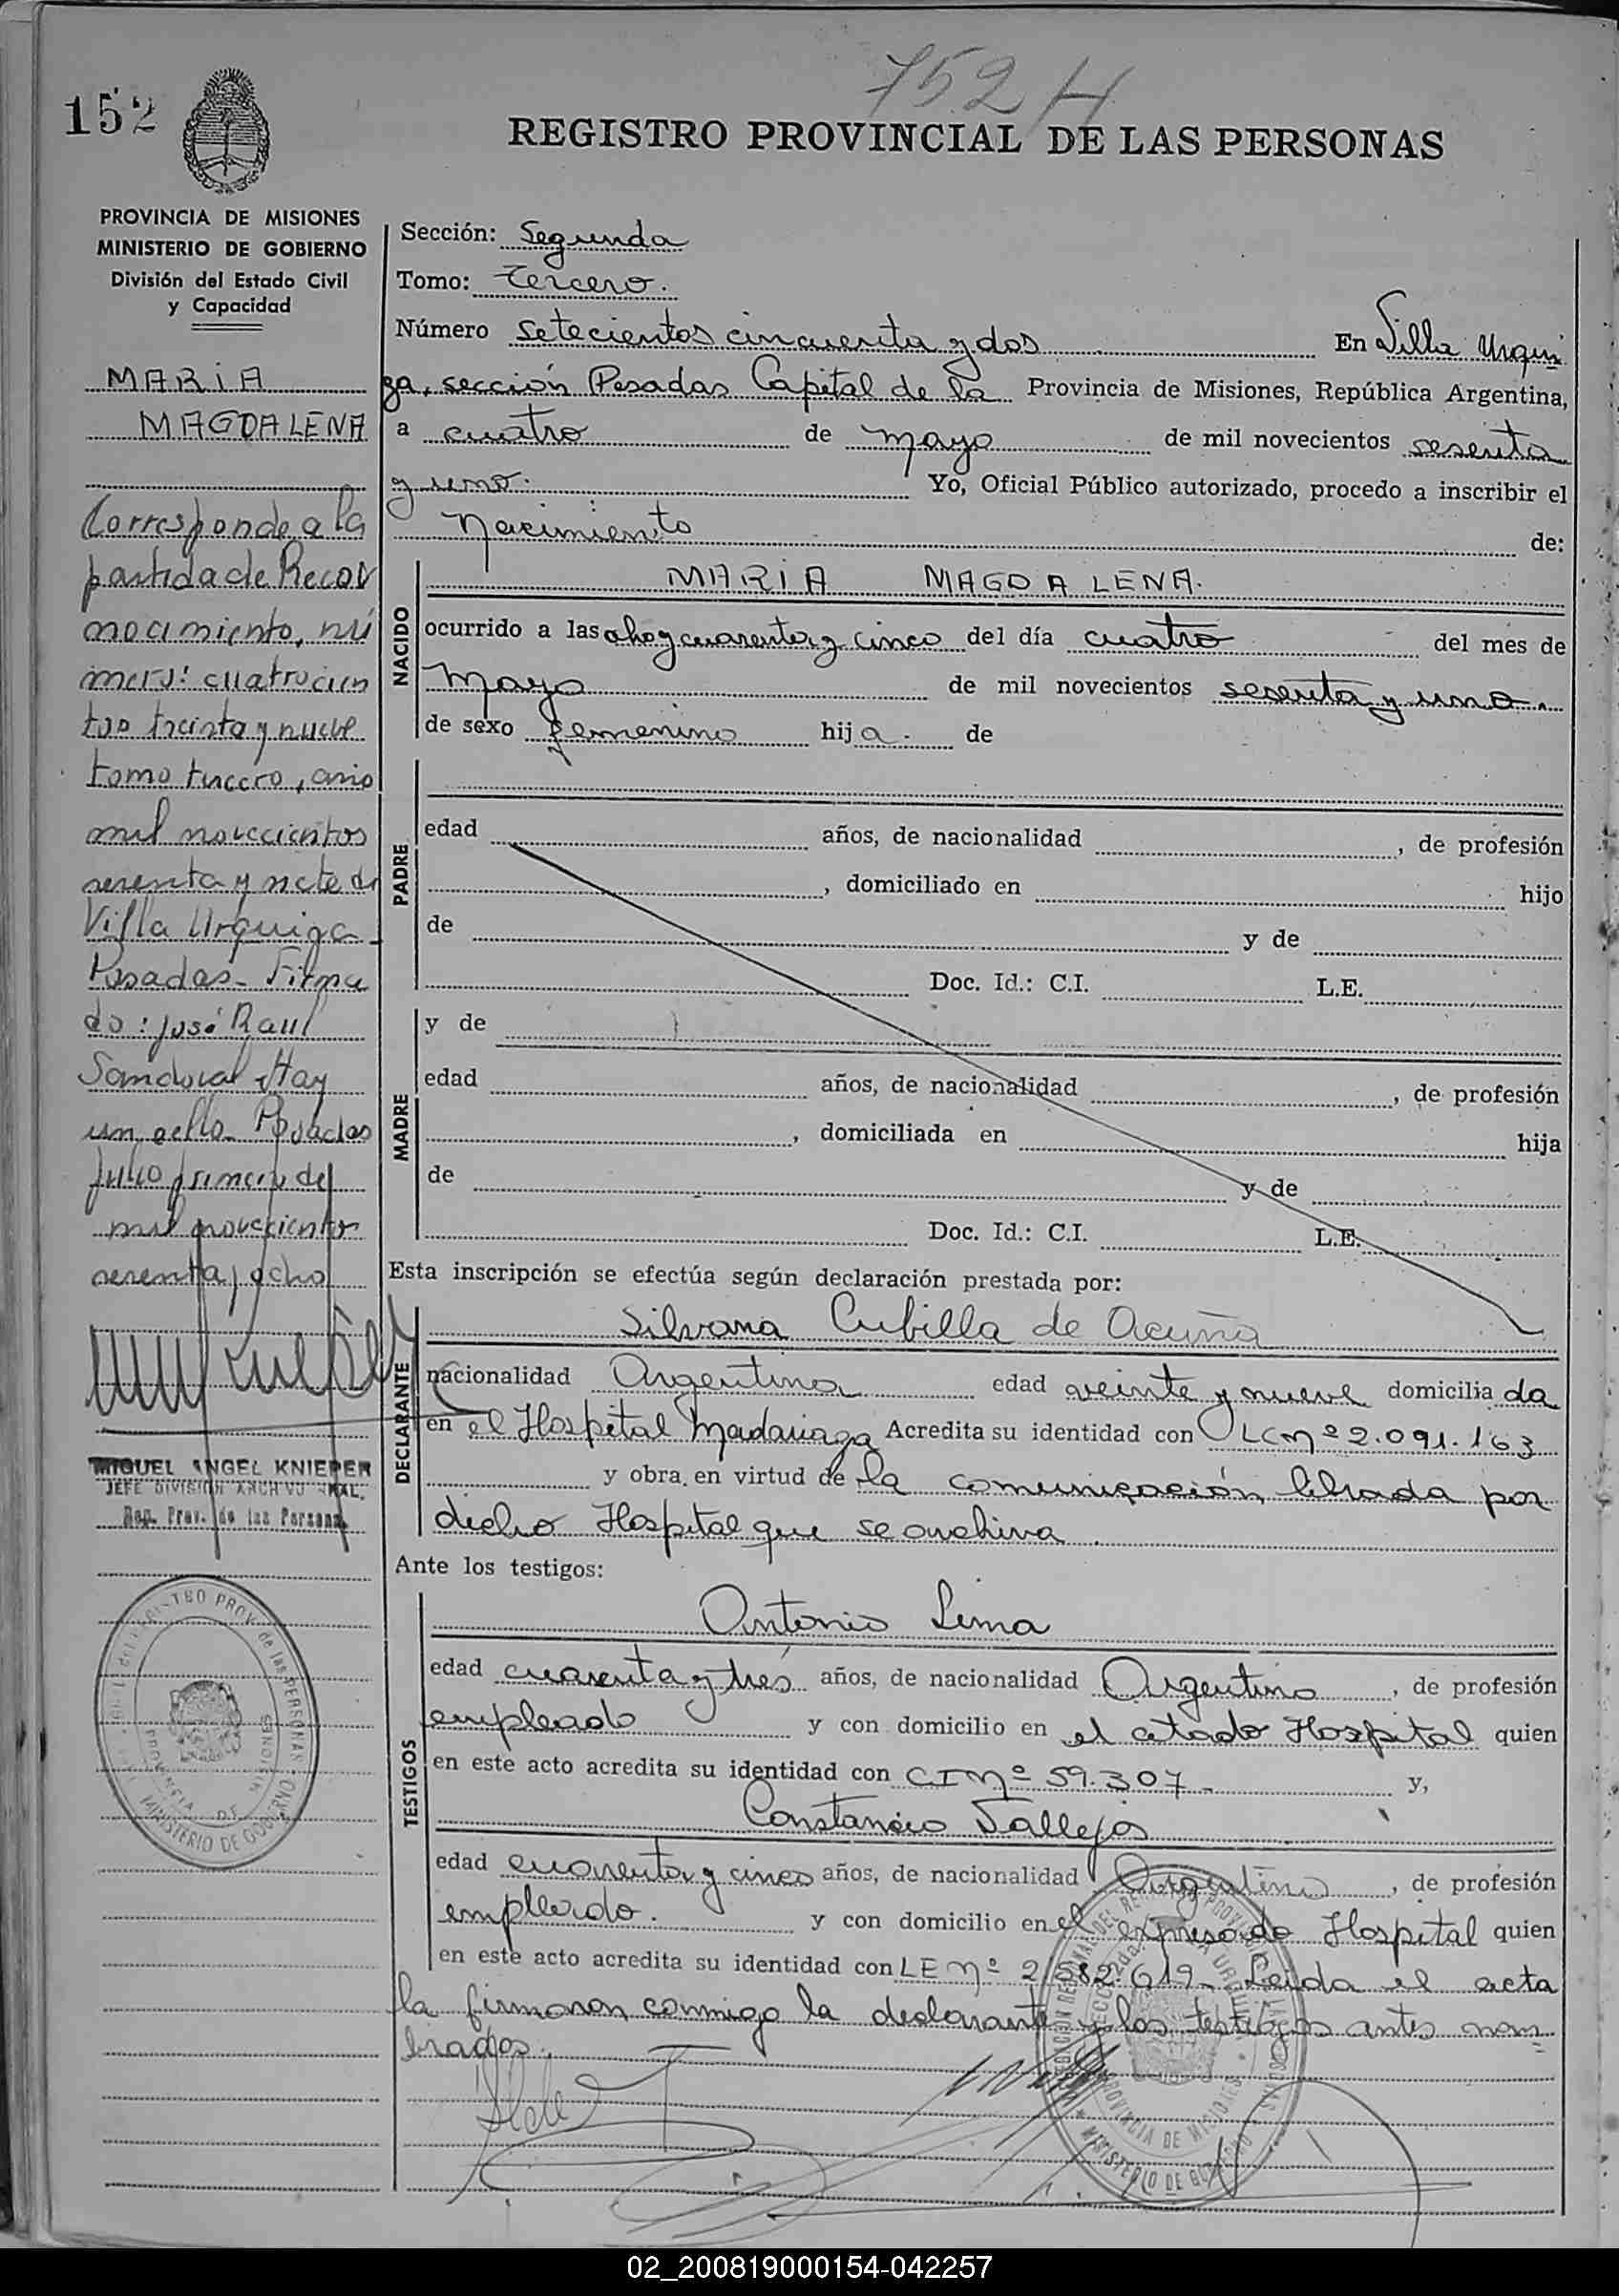 752 H
152
REGISTRO PROVINCIAL DE LAS PERSONAS
PROVINCIA DE MISIONES
MINISTERIO DE GOBIERNO
División del Estado Civil
y Capacidad
MARIA
MAGDALENA
Corresponde a la
partida de Recon
nocimiento, nú
mero: cuatrocien
tos treinta y nueve
tomo tercero, año
mil novecientos
sesenta y siete de
Villa Urquiza
Posadas - Firma
do: José Raul
Sandoval Hay
un sello. Posadas
Julio primero de
mil novecientos
sesenta y ocho
MIGUEL ANGEL KNIEPER
JEFE DIVISION ARCHIVO GRAL.
Reg. Prov. de las Personas
Sección: Segunda
Tomo: tercero.
Número setecientos cincuenta y dos En Villa Urqui
za, sección Posadas Capital de la Provincia de Misiones, República Argentina,
a cuatro de mayo de mil novecientos sesenta
y uno. Yo, Oficial Público autorizado, procedo a inscribir el
Nacimiento de:
NACIDO
MARIA MAGDALENA.
ocurrido a las ocho y cuarenta y cinco del día cuatro del mes de
Mayo de mil novecientos sesenta y uno.
de sexo femenino hija. de
PADRE
edad años, de nacionalidad , de profesión
, domiciliado en hijo
de y de
Doc. Id.: C.I. L.E.
MADRE
y de
edad años, de nacionalidad , de profesión
, domiciliada en hija
de y de
Doc. Id.: C.I. L.E.
Esta inscripción se efectúa según declaración prestada por:
DECLARANTE
Silvana Cubilla de Acuña
nacionalidad Argentina edad veinte y nueve domiciliada
en el Hospital Madariaga Acredita su identidad con LC Nº 2.091.163
y obra en virtud de la comunicación librada por
dicho Hospital que se archiva.
Ante los testigos:
TESTIGOS
Antonio Lima
edad cuarenta y tres años, de nacionalidad Argentino, de profesión
empleado y con domicilio en el citado Hospital quien
en este acto acredita su identidad con CI Nº 59.307- y,
Constancio Vallejos
edad cuarenta y cinco años, de nacionalidad Argentino, de profesión
empleado. y con domicilio en el expresado Hospital quien
en este acto acredita su identidad con LE Nº 2.582.619- Leida el acta
la firmaron conmigo la declarante y los testigos antes nom
brados.
MINISTERIO DE GOBIERNO
PROVINCIA DE MISIONES
02_200819000154-042257